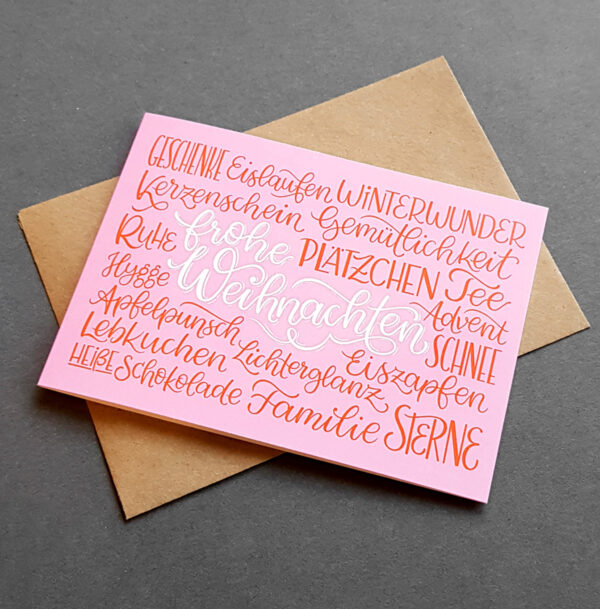 GESCHENKE Eislaufen WiNTERWUNDER
Kerzenschein Gemütlichkeit
RUHE frohe PLÄTZCHEN Tee
Hygge Weihnachten Advent
Apfelpunsch Eiszapfen SCHNEE
Lebkuchen Lichterglanz
HEIẞE Schokolade Familie STERNE